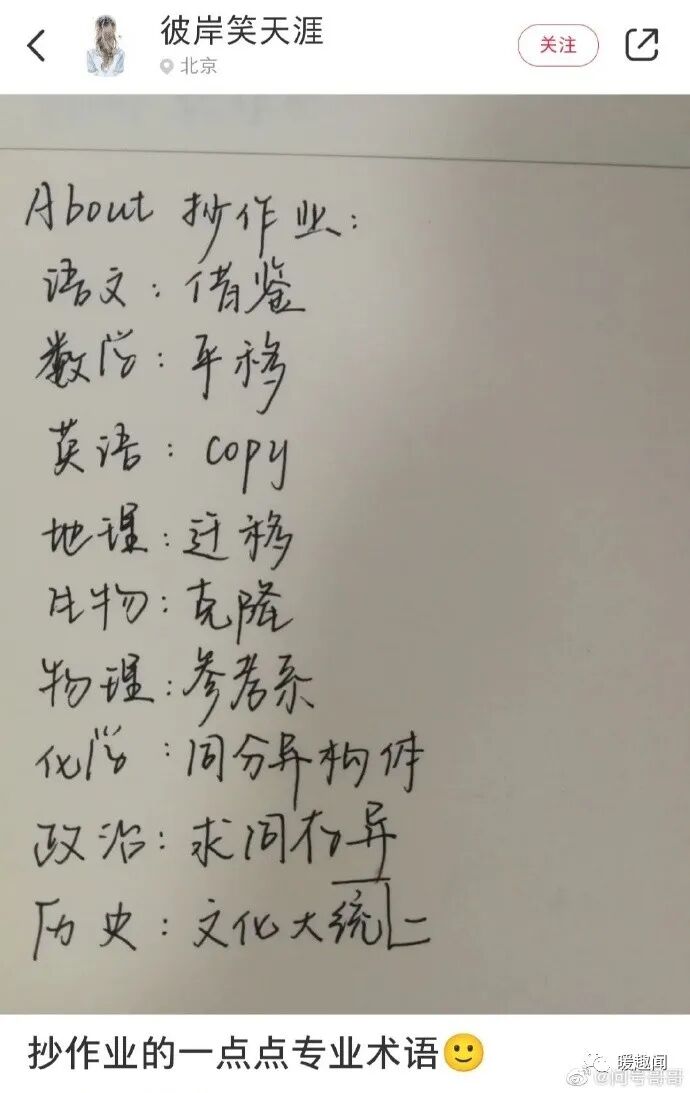 彼岸笑天涯
北京
关注
About 抄作业：
语文：借鉴
数学：平移
英语：copy
地理：迁移
生物：克隆
物理：参考系
化学：同分异构体
政治：求同存异
历史：文化大统一
抄作业的一点点专业术语🙂
暖趣闻
@问号哥哥